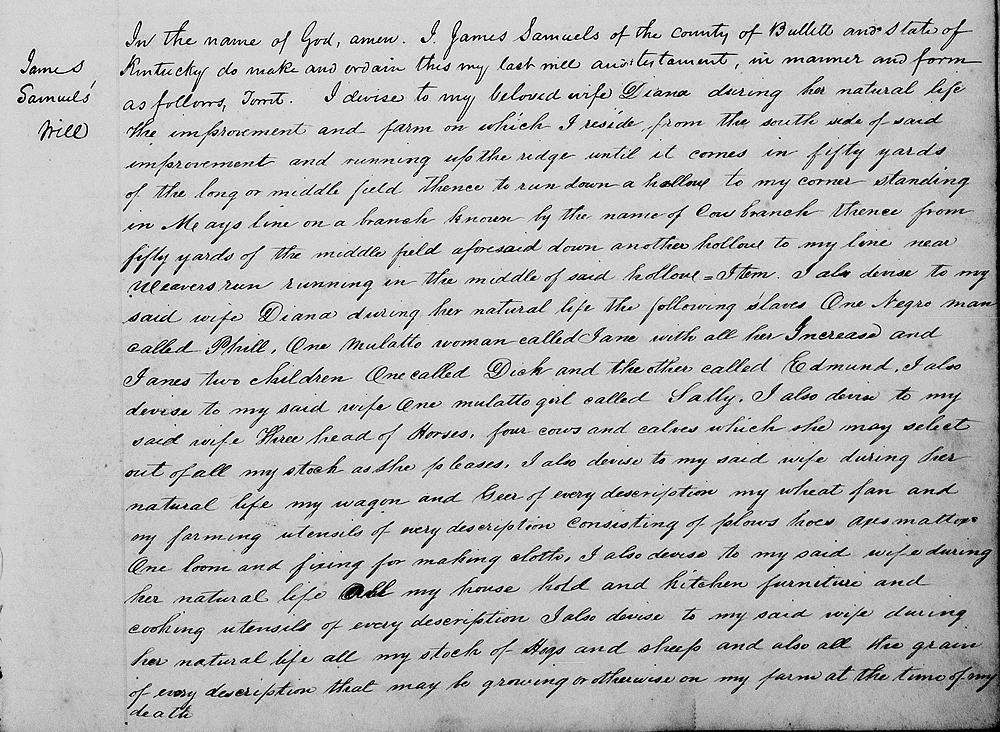 James
Samuels'
Will
In the name of God, amen. I. James Samuels of the county of Bullett and State of
Kintucky do make and ordain this my last will and testament, in manner and form
as follows, Towit. I devise to my beloved wife Diana during her natural life
the improvement and farm on which I reside, from the south side of said
improvement and running up the ridge until it comes in fifty yards
of the long or middle field thence to run down a hollow to my corner standing
in Mc ays line on a branch known by the name of Cow branch thence from
fifty yards of the middle field aforesaid down another hollow to my line near
Weavers run running in the middle of said hollow = Item. I also devise to my
said wife Diana during her natural life the following slaves One Negro man
called Phill, One Mulatto woman called Jane with all her Increase and
Janes two children One called Dick and the other called Edmund, I also
devise to my said wife One mulatto girl called Sally, I also devise to my
said wife three head of Horses, four cows and calves which she may select
out of all my stock as she pleases, I also devise to my said wife during her
natural life my wagon and Geer of every description my wheat fan and
my farming utensils of every description consisting of plows hoes axes mattox
One loom and fixing for making cloth, I also devise to my said wife during
her natural life all my house hold and kitchen furniture and
cooking utensils of every description I also devise to my said wife during
her natural life all my stock of Hogs and sheep and also all the grain
of every description that may be growing or otherwise on my farm at the time of my
death